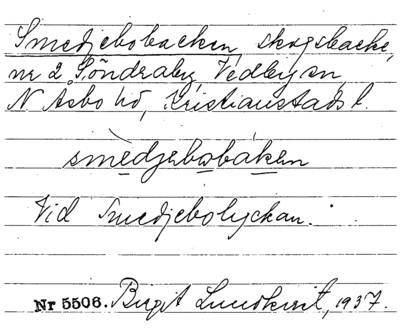 Smedjebobacken, skogsbacke,
nr 2 Söndraby, Vedby sn,
N Åsbo hd, Kristianstads l.
smedjebobáken
Vid Smedjebolyckan.
Nr 5506. Birgit Lundkvist, 1937.